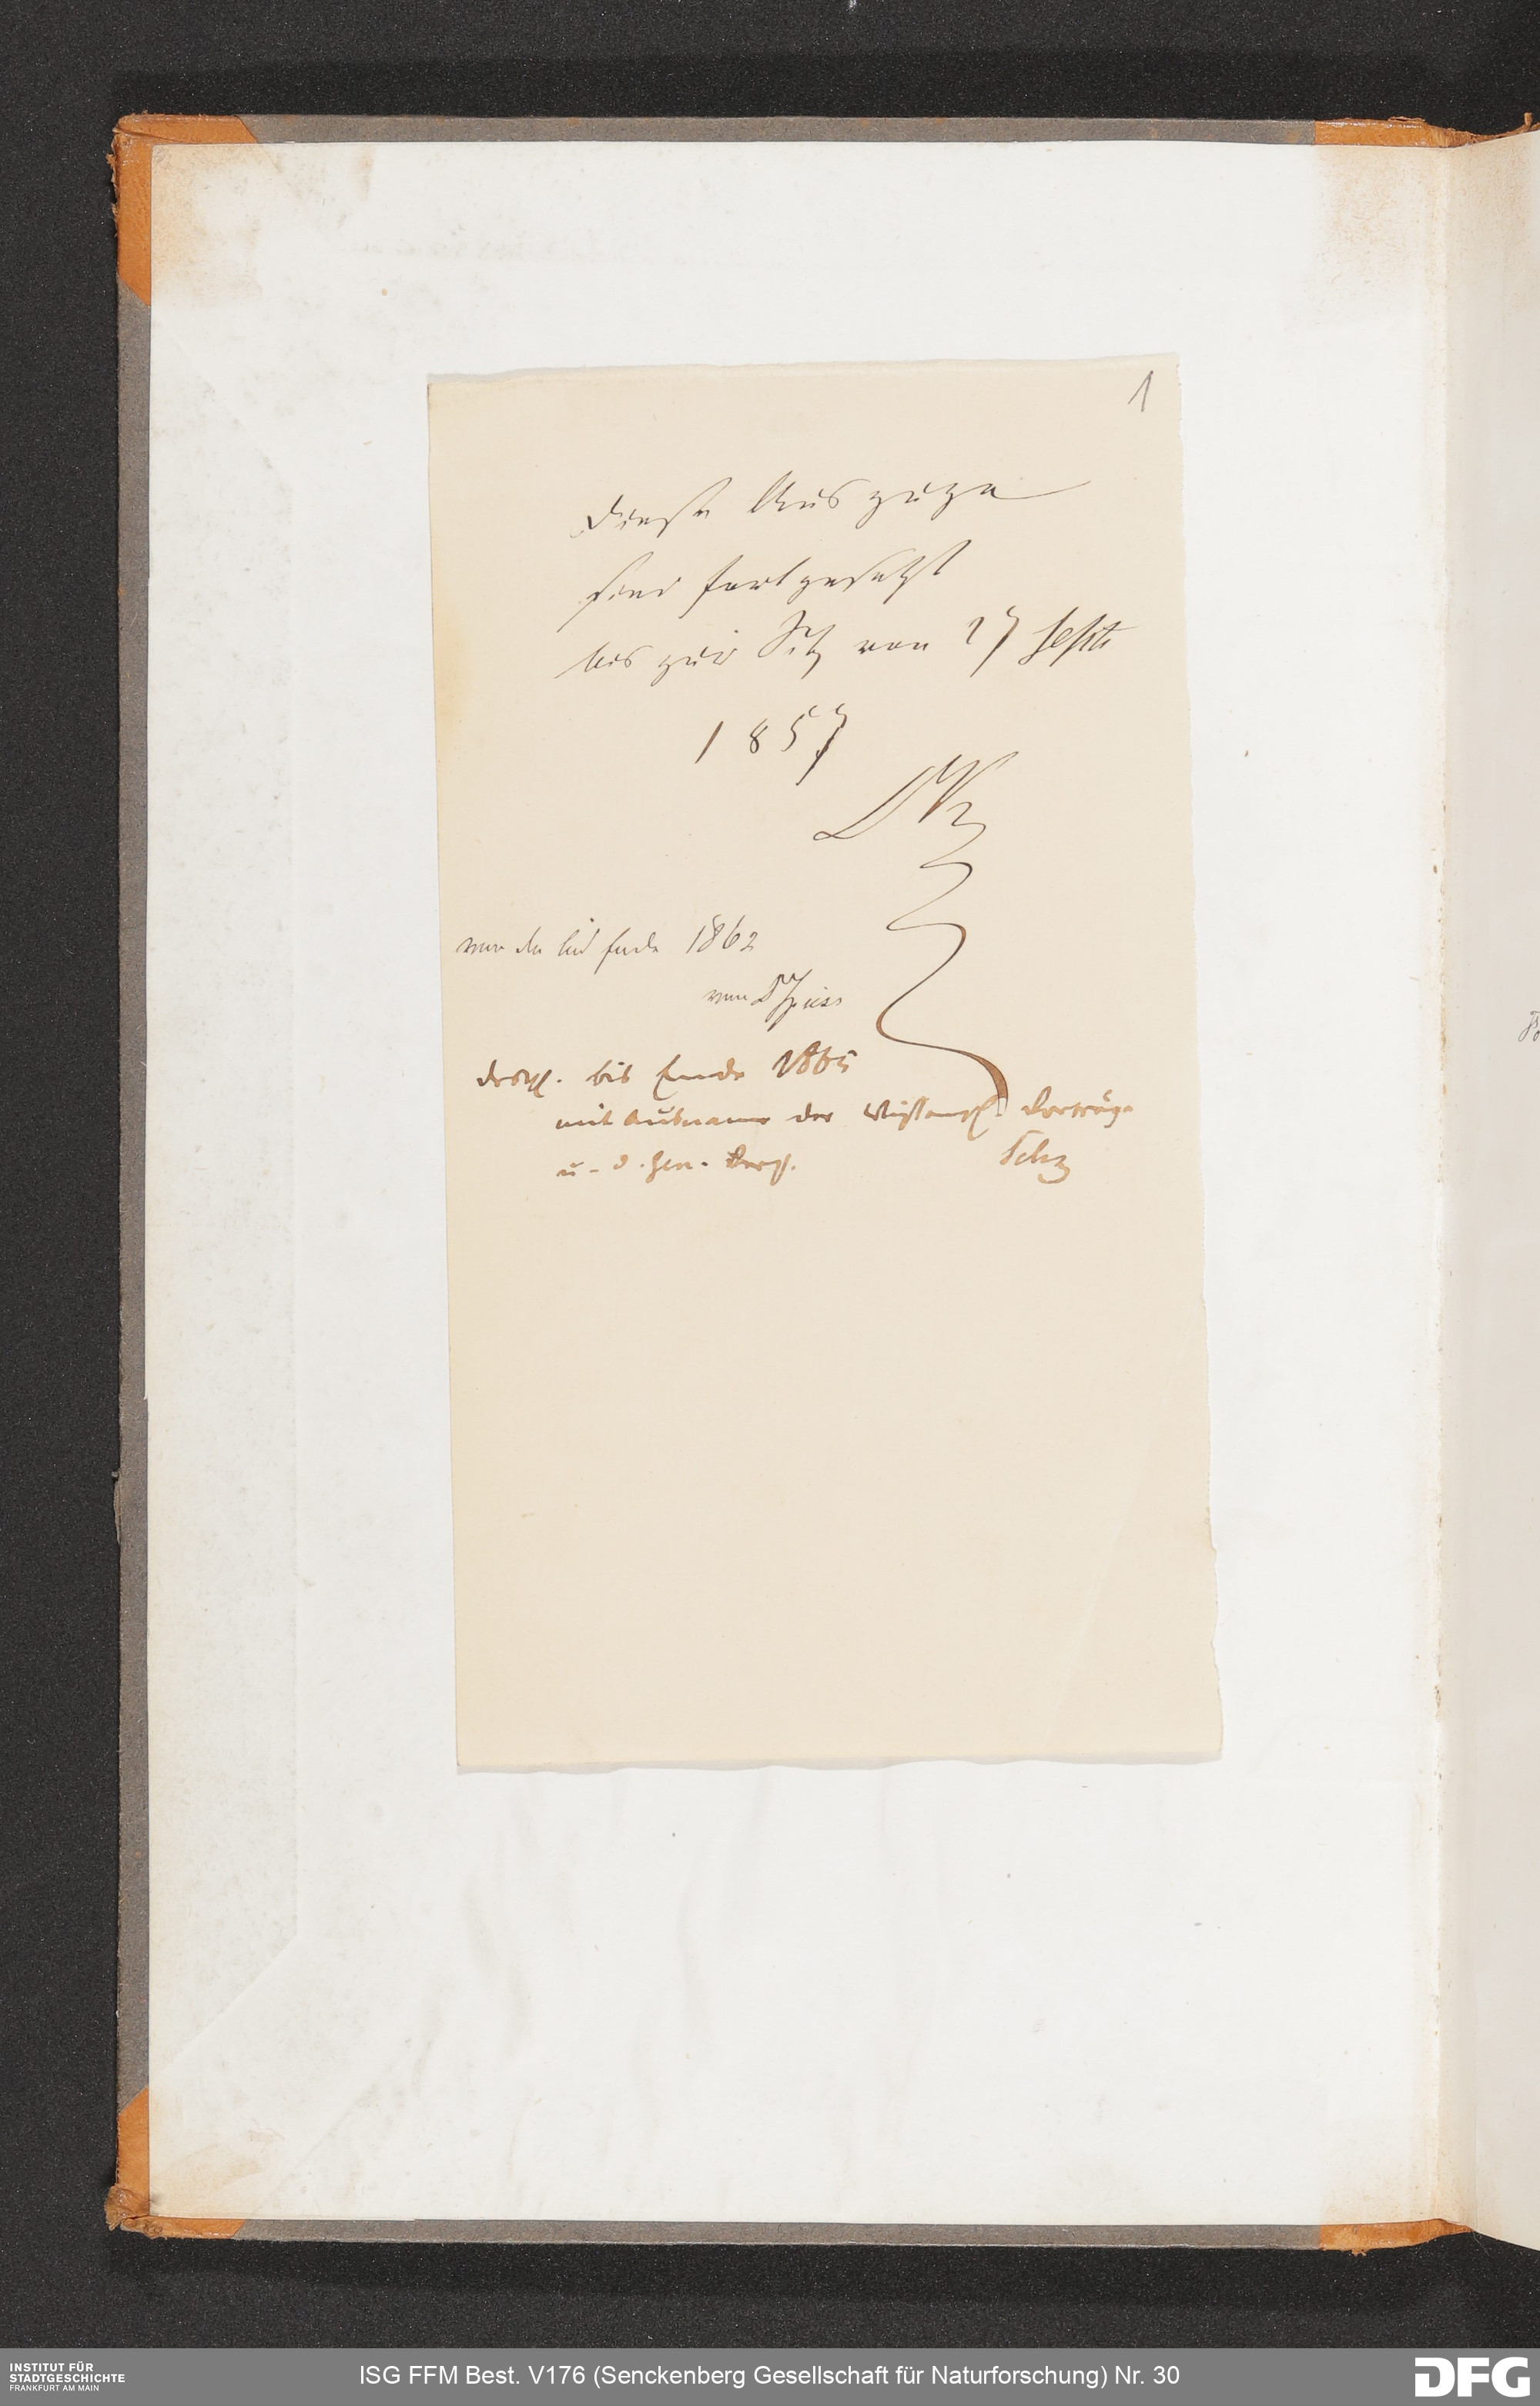 1
Diese Auszüge
sind fortgesetzt
bis zur Sitz von 27 Septb
1857
von da bis Ende 1862
von Dr Spiess
desgl. bis Ende 1865
mit Ausname der Wissensch. Vorträge
u. d. Gen. Vers.
Schz
INSTITUT FÜR
STADTGESCHICHTE
FRANKFURT AM MAIN
ISG FFM Best. V176 (Senckenberg Gesellschaft für Naturforschung) Nr. 30
DFG